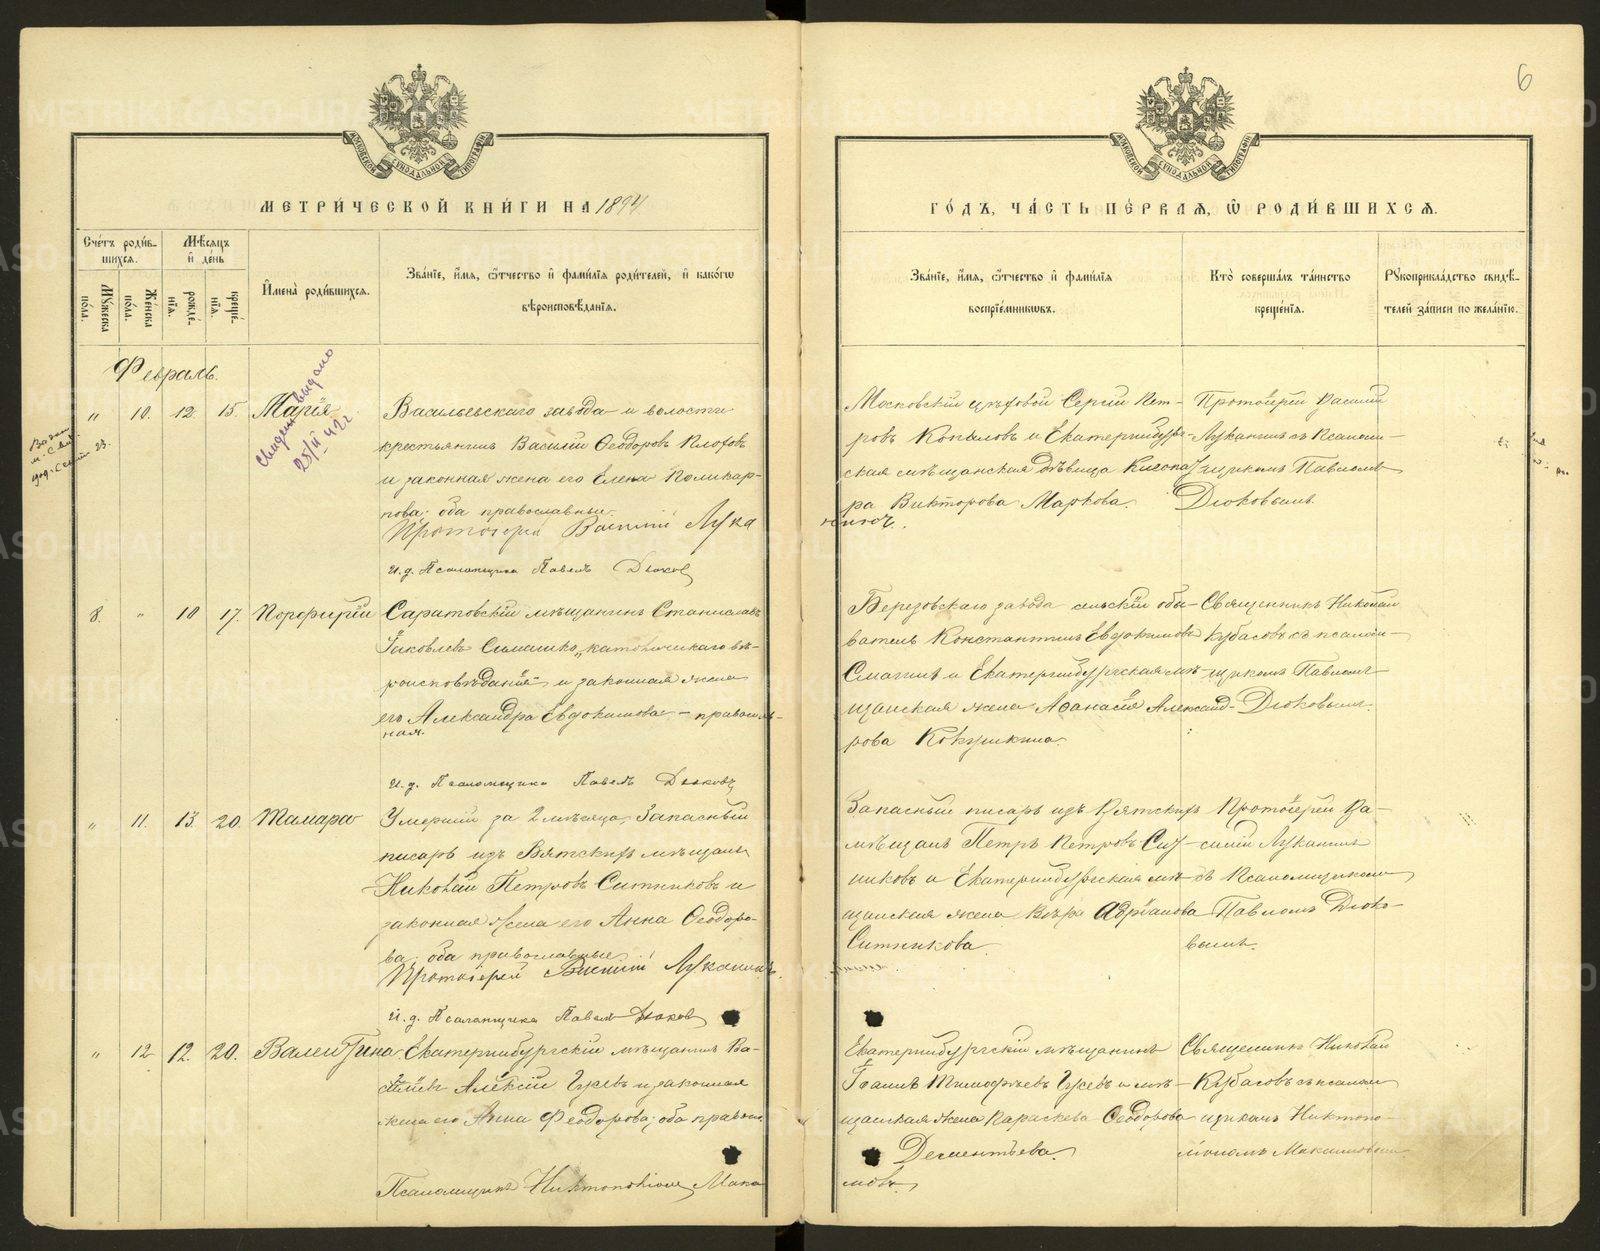 6
МОСКОВСКОЙ СѴНОДАЛЬНОЙ ТИПОГРАФІИ
МОСКОВСКОЙ СѴНОДАЛЬНОЙ ТИПОГРАФІИ
МЕТРИ́ЧЕСКОЙ КНИ́ГИ НА 1894
ГО́ДЪ, ЧА́СТЬ ПЕ́РВАЯ, Ѡ РОДИ́ВШИХСЯ.
Сче́тъ роди́в-
шихся.
Мѣсяцъ
и҆ де́нь
Мꙋ́жеска
по́ла.
Же́нска
по́ла.
рожде́-
нїѧ.
креще́-
нїѧ.
И҆мена̀ роди́вшихся.
Зва́нїе, и҆́мѧ, ѻ҆́тчество и҆ фами́лїѧ роди́телей, и҆ како́гѡ
вѣроисповѣ́данїѧ.
Зва́нїе, и҆́мѧ, ѻ҆́тчество и҆ фами́лїѧ
воспрїе́мникѡвъ.
Кто̀ соверша́лъ та́инство
креще́нїѧ.
Рꙋкоприкла́дство свидѣ́-
телей за́писи по жела́нїю.
Февраль.
Свидет выдано
25/II 42 г
" 10. 12. 15. Марія
Васильевскаго завода и волости
крестьянинъ Василій Ѳеодоровъ
и законная жена его Елена Поликар-
пова: оба православные.
Протоіерей Василій Лука
нинъ.
И. д. Псаломщика Павелъ Дюков
Московскій цеховой Сергій Пет-
ровъ Копыловъ и Екатеринбург-
ская мѣщанская дѣвица
ра Викторова Маркова.
Протоіерей Василій
Луканинъ съ Псалом-
щикомъ Павломъ
Дюковымъ.
8. " 10 17. Порфирій
Саратовскій мѣщанинъ Станиславъ
Яковлевъ католическаго вѣ-
роисповѣданія и законная жена
его Александра Евдокимова – православ-
ная.
И. д. Псаломщика Павелъ Дюковъ
Березовскаго завода сельскій обы-
ватель Константинъ Евдокимовъ
Смагинъ и Екатеринбургская мѣ-
щанская жена Аѳанасія Александ-
рова Кокушкина.
Священникъ Николай
Кубасовъ съ псалом-
щикомъ Павломъ
Дюковымъ.
" 11. 13. 20. Тамара
Умершій за 2 мѣсяца, Запасный
писарь изъ Вятскихъ мѣщанъ
Николай Петровъ Ситниковъ и
законная жена его Анна Ѳеодоро-
ва, оба православные.
Протоіерей Василій Луканинъ.
И. д. Псаломщика Павелъ Дюковъ
Запасный писарь изъ Вятскихъ
мѣщанъ Петръ Петровъ Сит-
никовъ и Екатеринбургская мѣ-
щанская жена Вѣра Адріанова
Ситникова.
Протоіерей Ва-
силій Луканинъ
съ Псаломщикомъ
Павломъ Дюко-
вымъ.
" 12 12. 20. Валентина
Екатеринбургскій мѣщанинъ Ва-
силіевъ Алексій Гусевъ и законная
жена его Анна Феодорова; оба правосл.
Псаломщикъ Никтополіонъ Мака
Екатеринбургскій мѣщанинъ
Іоаннъ Тимофѣевъ Гусевъ и мѣ-
щанская жена Параскева Ѳеодорова
Дементьева.
Священникъ Николай
Кубасовъ съ псалом-
щикомъ Никтопо-
ліономъ